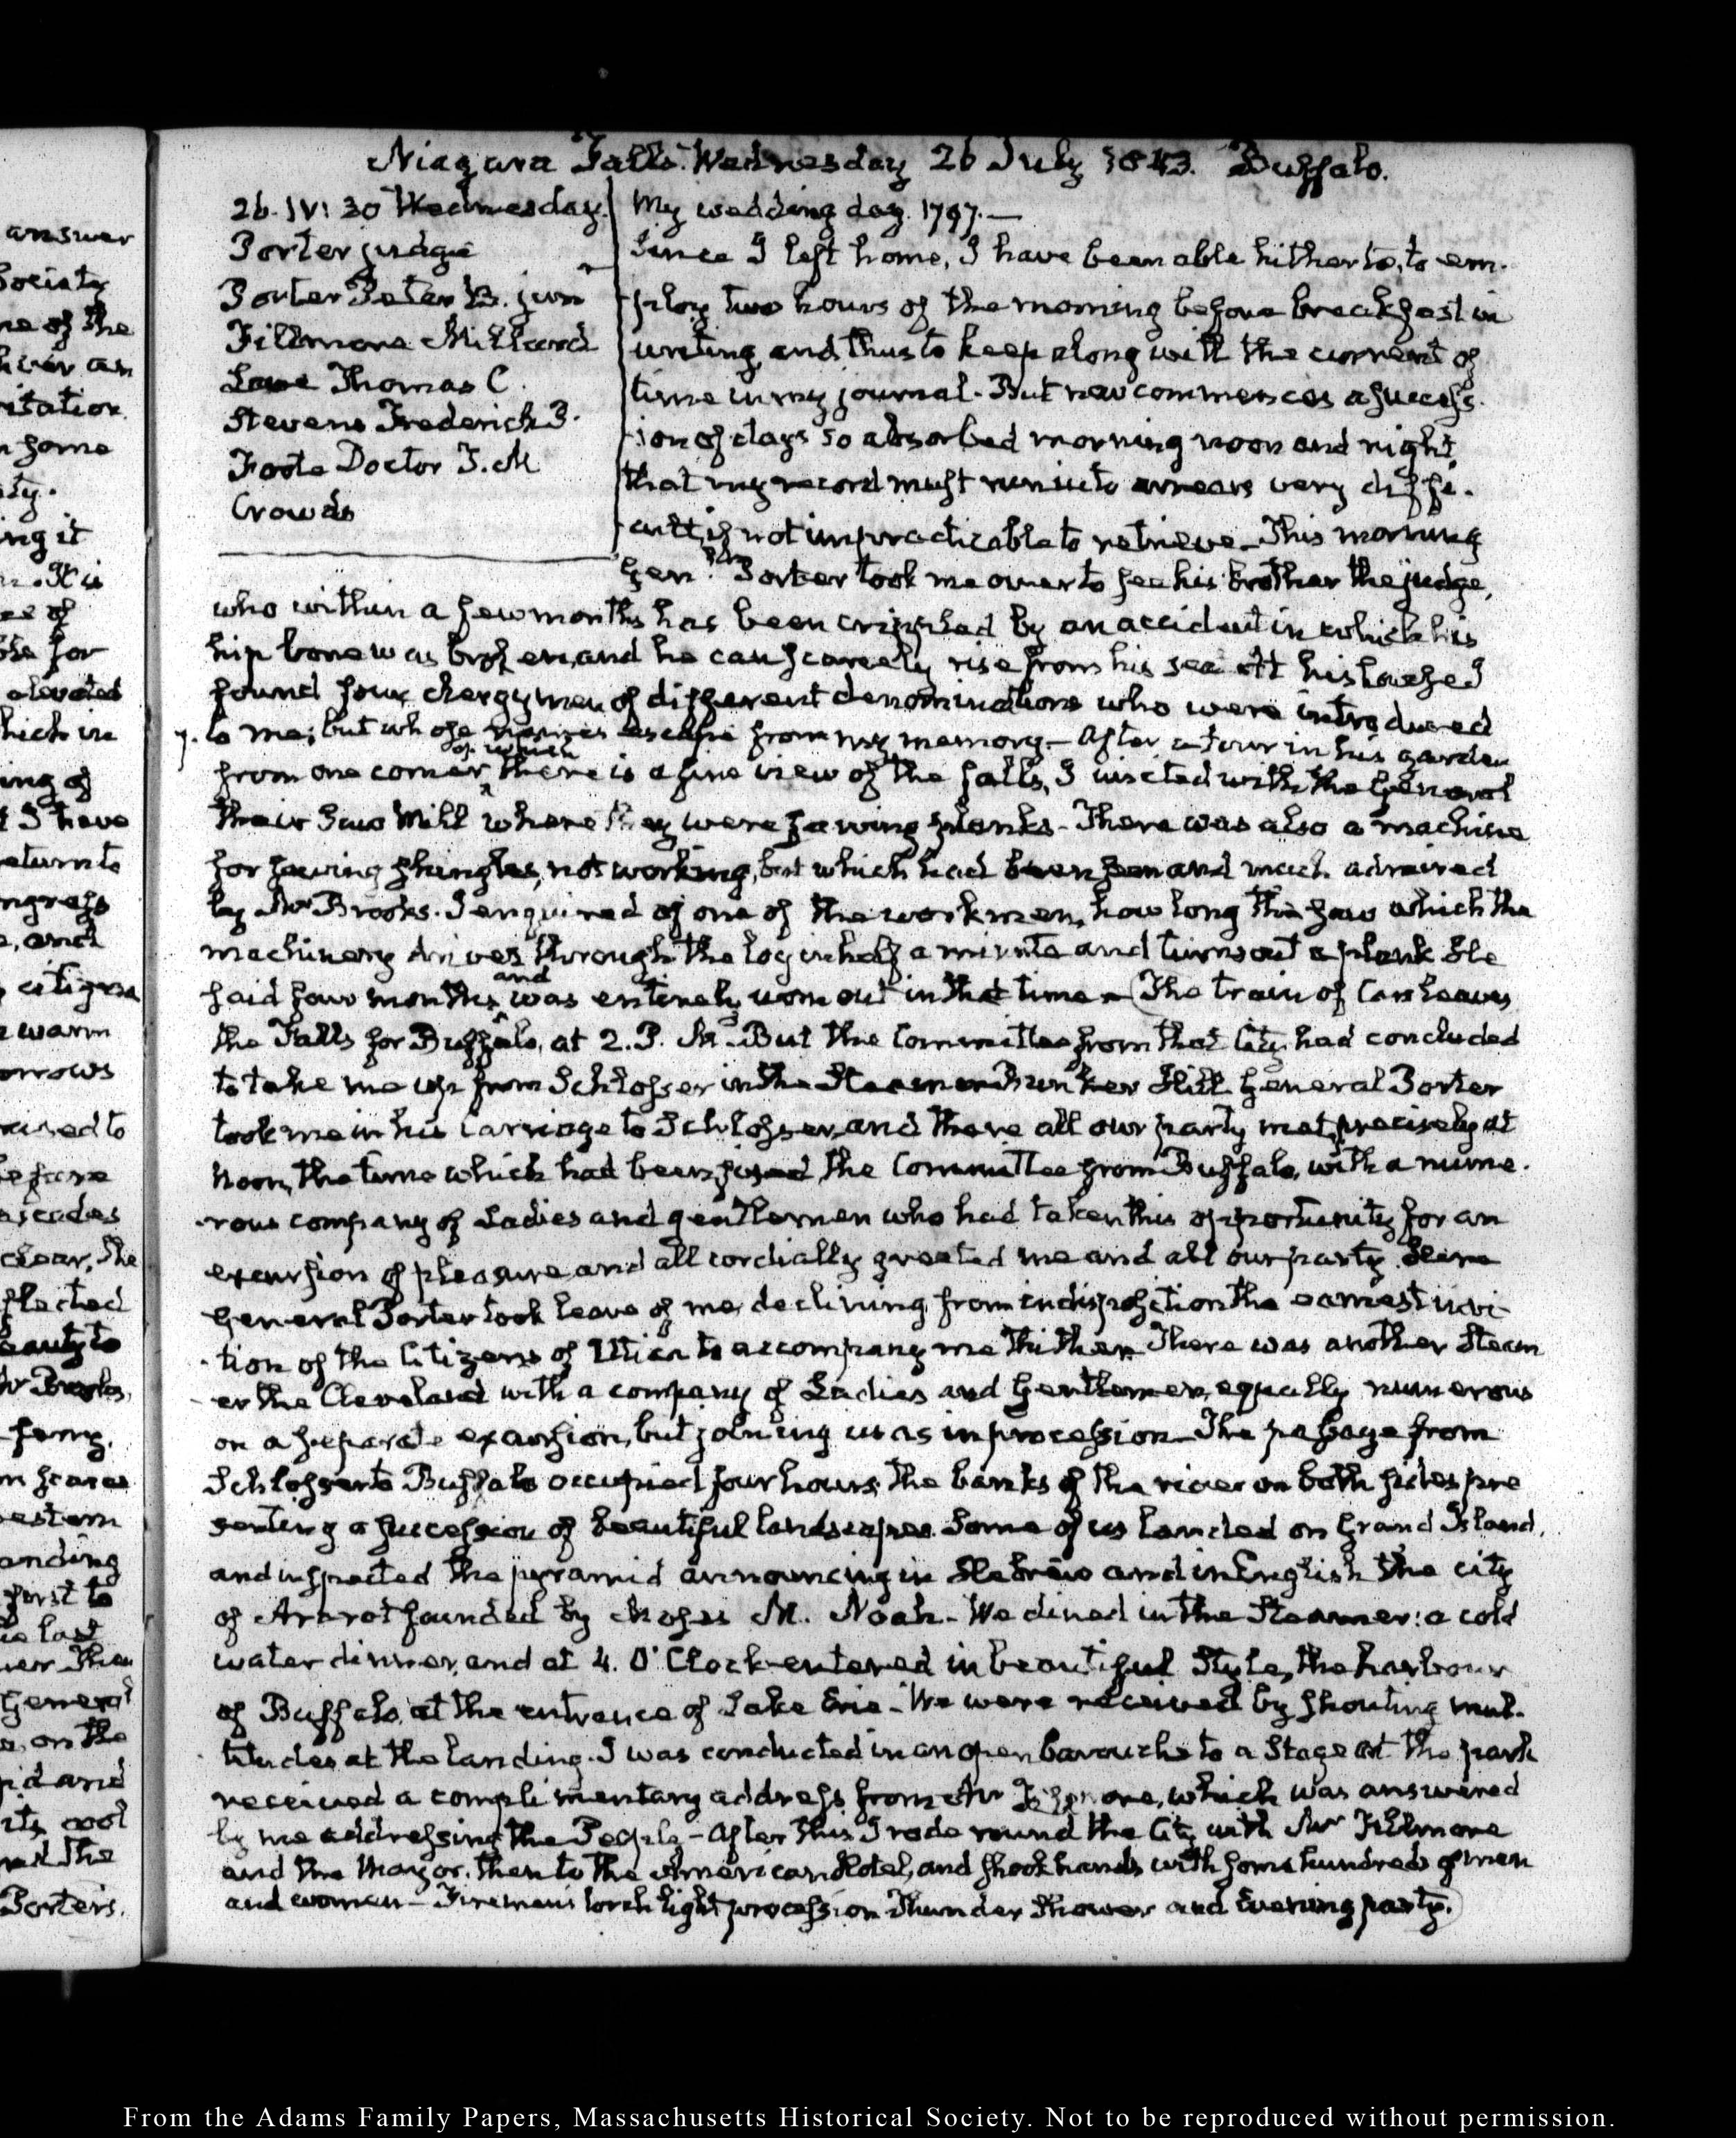 Niagara Falls. Wednesday 26 July 1843. Buffalo.
26. IV: 30 Wednesday.
Porter judge
Porter Peter B. jun
Fillmore Millard
Love Thomas C.
Stevens Frederick P.
Foote Doctor T. M
Crowds
My wedding day. 1797.—
Since I left home, I have been able hitherto, to em-
ploy two hours of the morning before breakfast in
writing, and thus to keep along with the current of
time in my journal. But now commences a success-
ion of days so absorbed morning noon and night,
that my record must run into arrears very diffi-
cult, if not impracticable to retrieve— This morning
Genl. Porter took me over to see his brother the judge,
who within a few months has been crippled by an accident in which his
hip bone was broken, and he can scarcely rise from his seat At his house I
found four clergymen of different denominations who were introduced
to me; but whose names escape from my memory— After a tour in his garden
from one corner of which there is a fine view of the falls, I visited with the General
their Saw Mill where they were sawing planks— There was also a machine
for sawing shingles, not working, but which had been seen and much admired
by Mr Brooks. I enquired of one of the workmen, how long the saw which the
machinery drives through the log in half a minute and turns out a plank He
said four months, and was entirely worn out in that time— (The train of Cars leaves
the Falls for Buffalo, at 2. P. M. But the Committee from that City had concluded
to take me up from Schlosser in the Steamer Bunker Hill General Porter
took me in his Carriage to Schlosser, and there all our party met, precisely at
Noon, the time which had been fixed, the Committee from Buffalo, with a nume-
rous company of Ladies and gentlemen who had taken this opportunity for an
excursion of pleasure, and all cordially greeted me and all our party. Here
General Porter took leave of me, declining, from indisposition the earnest invi-
tion of the Citizens of Utica to accompany me thither. There was another Steam
er the Cleveland with a company of Ladies and Gentlemen, equally numerous
on a separate excursion, but joining us as in procession— The passage from
Schlosser to Buffalo occupied four hours; the banks of the river on both sides pre
senting a succession of beautiful landscapes. Some of us landed on Grand Island,
and inspected the pyramid announcing in Hebrew and in English the city
of Ararat founded by Moses M. Noah— We dined in the Steamer: a cold
water dinner, and at 4. O'Clock entered in beautiful Style, the harbour
of Buffalo, at the entrance of Lake Erie— We were received by shouting mul-
titudes at the landing. I was conducted in an open barouche to a Stage at the park
received a complimentary address from Mr Fillmore, which was answered
by me addressing the People— After this I rode round the City with Mr Fillmore
and the Mayor. then to the American Hotel, and shook hands with some hundreds of men
and women— Firemens torch light procession Thunder Shower and Evening party.)
answer
Society
ne of the
ng it
ee of
for
elevated
hich in
ing of
I have
return to
ngress
and
warm
before
cascades
clear, the
reflected
western
anding
first to
last
General
on the
and
its cool
Porter's.
From the Adams Family Papers, Massachusetts Historical Society. Not to be reproduced without permission.